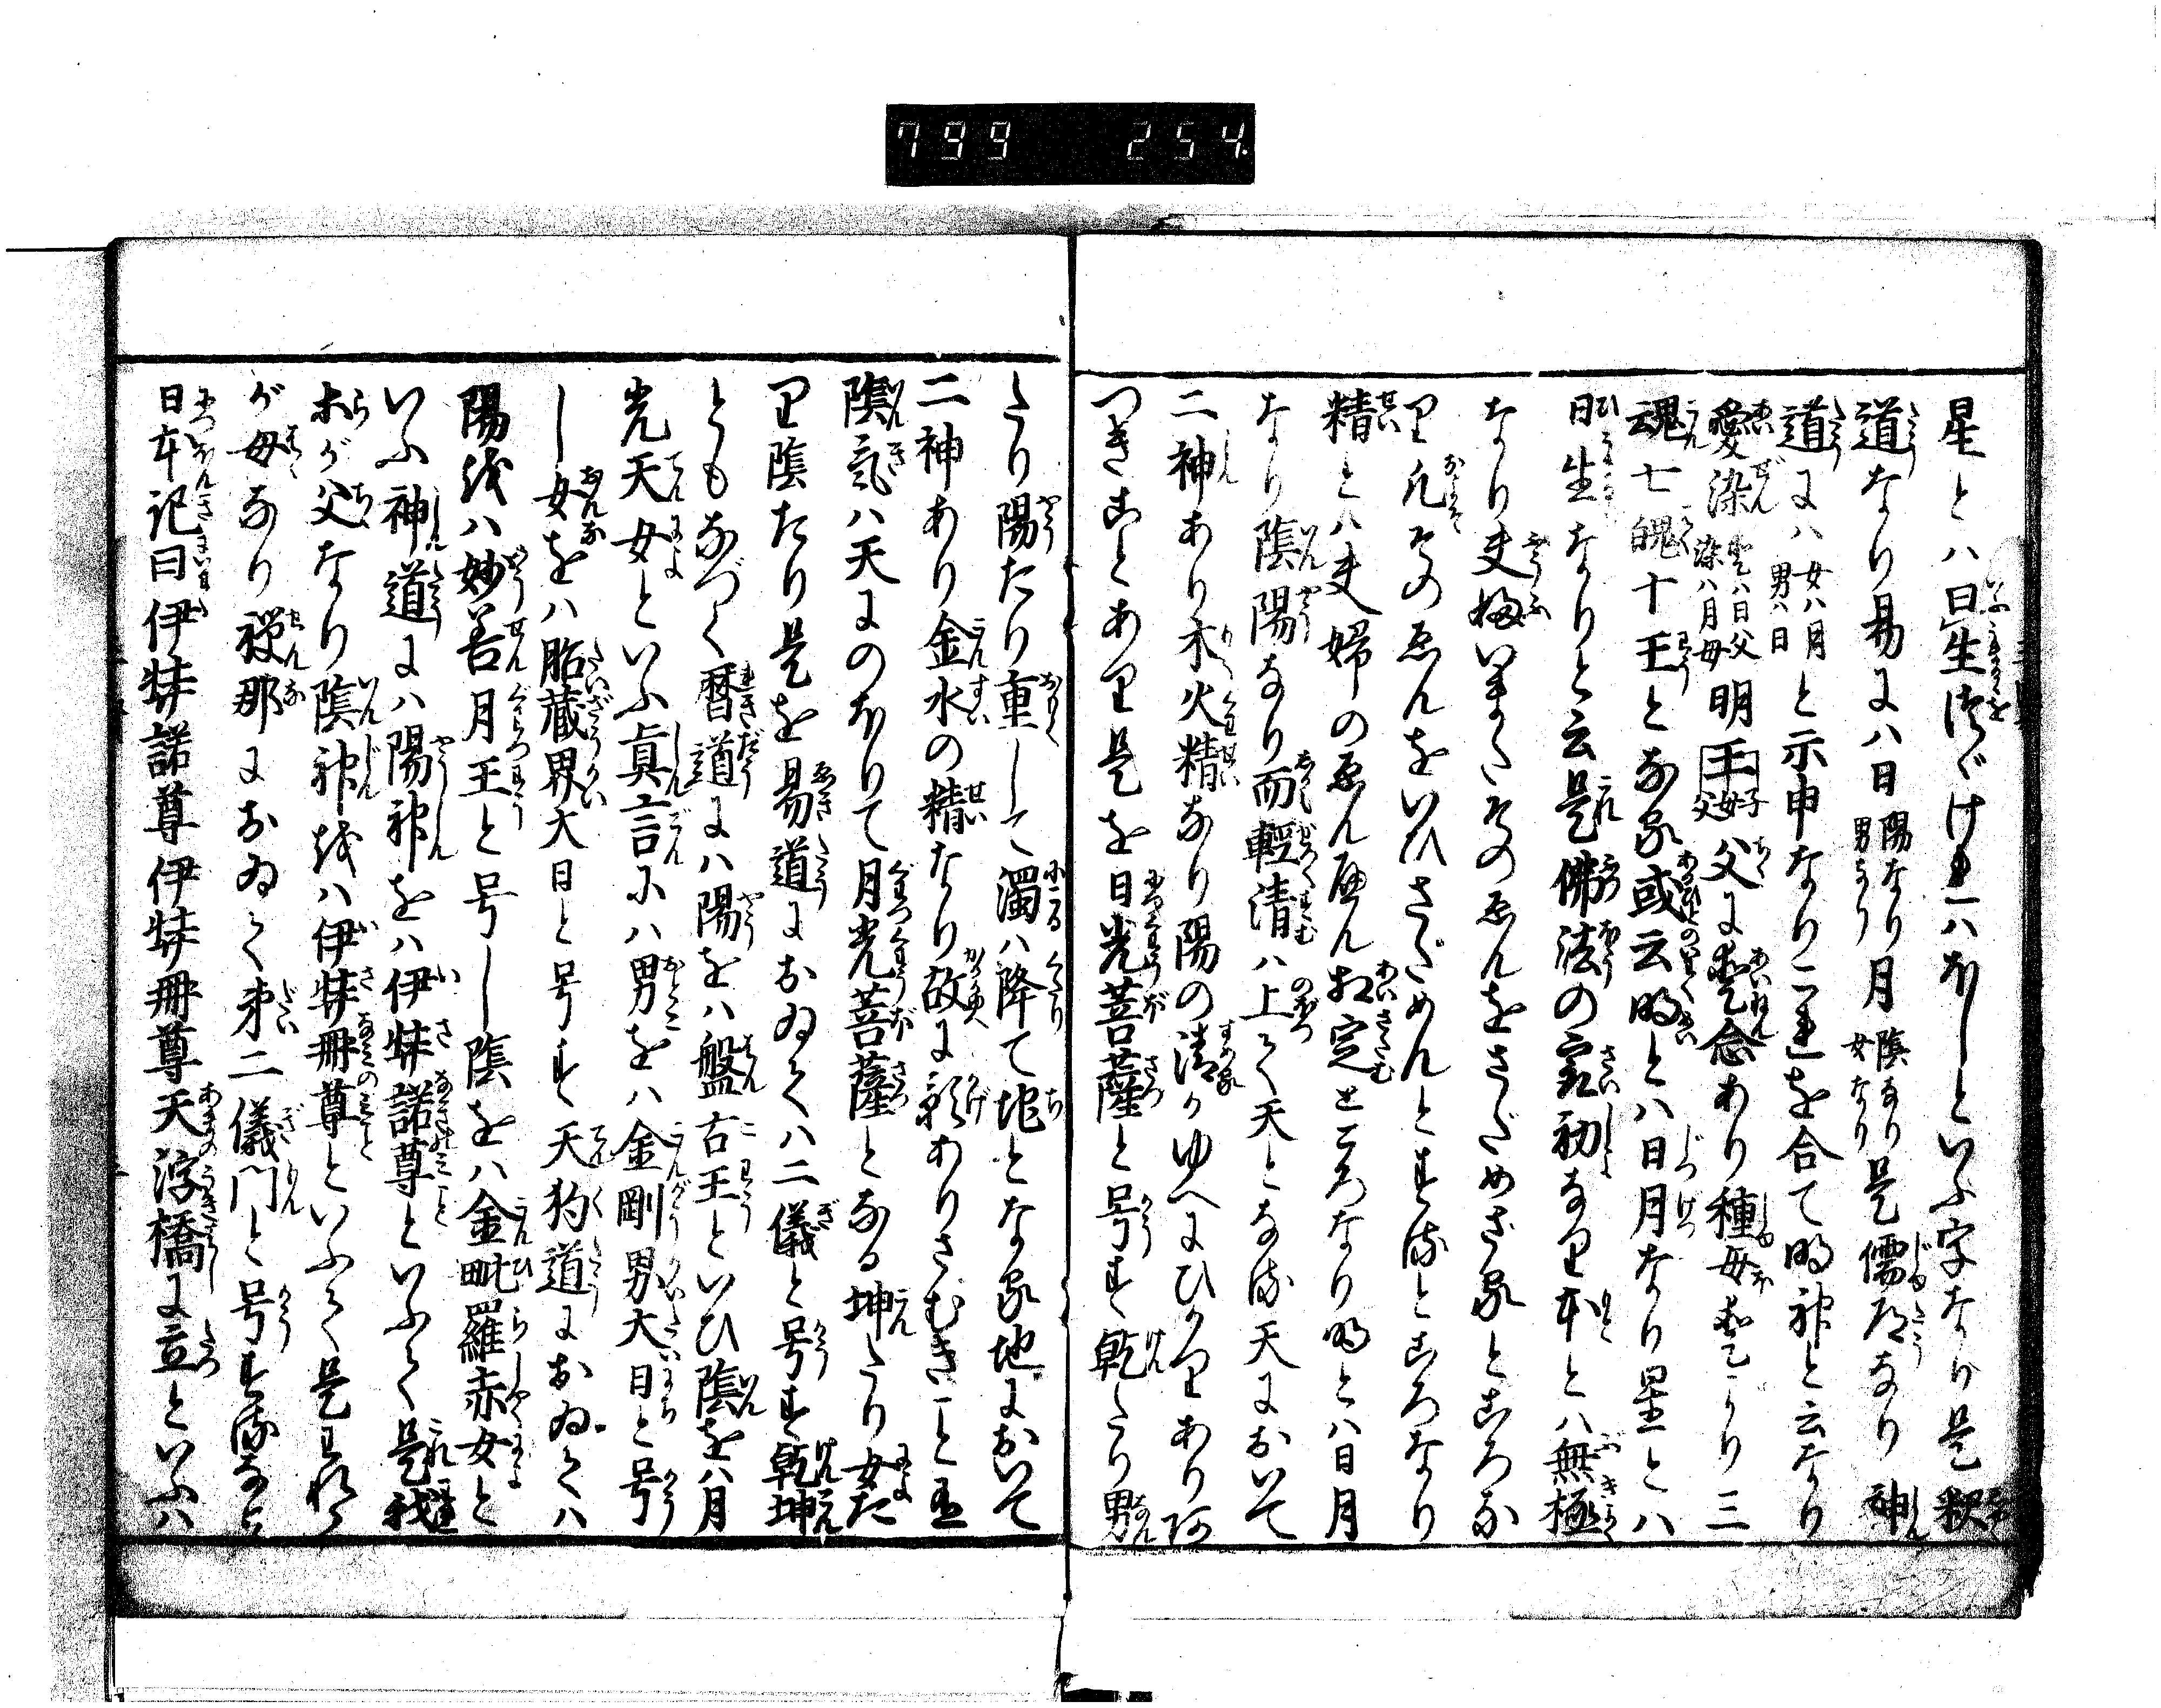 799 254
星とハ日生つゞけ𛂁ハほしといふ字なり是釈
道なり易にハ日陽なり男なり月陰なり女なり是儒道なり神
道にハ女ハ月男ハ日と示申なり二を合て明神と云なり
愛染愛ハ日父染ハ月母明王父に愛念あり種母愛より三
魂七魄十王となる或云明とハ日月なり星とハ
日生なりと云是佛法の最初なり本とハ無極
なり夫婦いまたそのゑんをさだめざるところな
り凡そのゑんをいひさだめんとするところなり
精とハ夫婦のゑん相定ところなり明とハ日月
なり陰陽なり而軽清ハ上て天となる天において
二神あり木火精なり陽の清るゆへにひかりあり
つきることあり是を日光菩薩と号す乾たり男
たり陽たり重して濁ハ降て地となる地において
二神あり金水の精なり故に影ありさむきこと
陰気ハ天にのぼりて月光菩薩となる坤たり女た
り陰たり是を易道におゐてハ二儀と号す乾坤
ともなづく暦道にハ陽をハ盤古王といひ陰をハ月
光天女といふ真言にハ男をハ金剛界大日と号
し女をハ胎蔵界大日と号す天狗道におゐてハ
陽をハ妙善月王と号し陰をハ金毗羅赤女と
いふ神道にハ陽神をハ伊弉諾尊といふて是我
らが父なり陰神をハ伊弉冊尊といふて是われら
が母なり禅那におゐて第二儀門と号するなり
日本記曰伊弉諾尊伊弉冊尊天浮橋に立といふハ